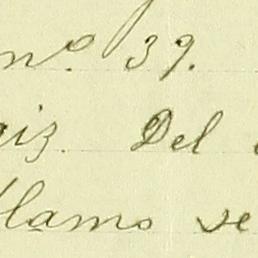 nº. 39.
aiz. Del
llamo se